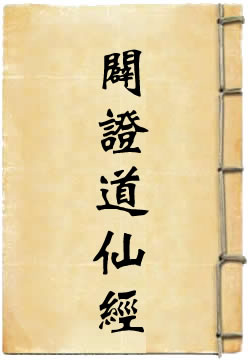 闢證道仙經